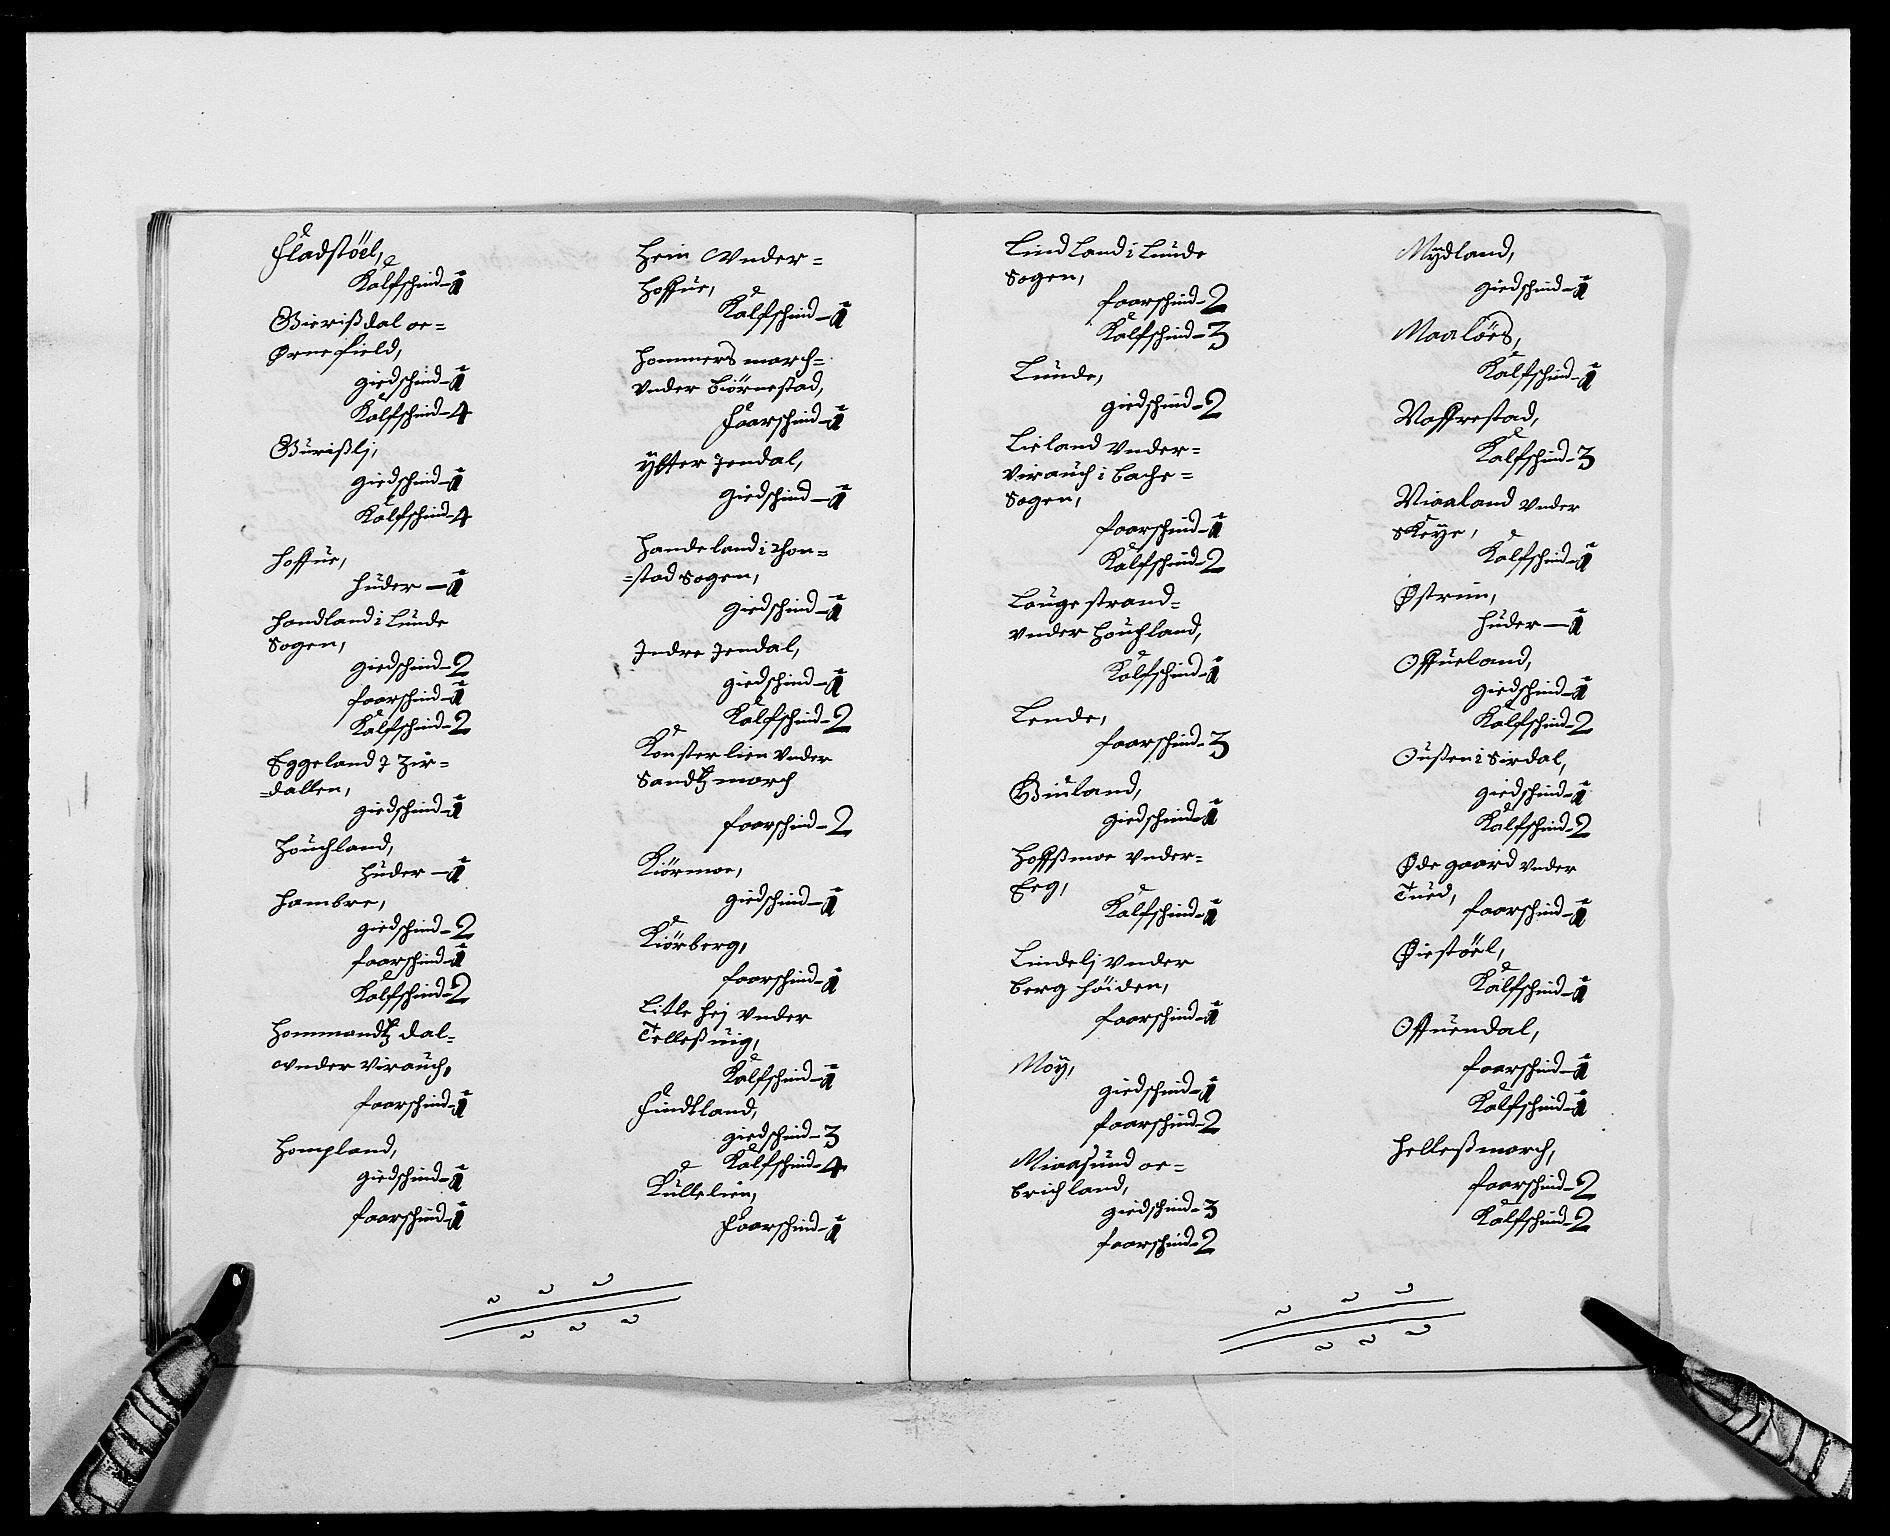 Fladstöel,
Kalfschind – 1
Gierißdal oc=
Ørnefield,
giedschind – 1
Kalfschind – 4
Gurißlj,
giedschind – 1
Kalfschind – 4
Hoffue,
Huder – 1
Handland i Lunde
Sogen,
giedschind – 2
faarschind – 1
Kalfschind – 2
Eggeland J Zir=
=dallen,
giedschind – 1
Houchland,
Huder – 1
Hambre,
giedschind – 2
faarschind – 1
Kalfschind – 2
Hommandtz dal=
vnder Virauch,
faarschind – 1
Hompland,
giedschind – 1
faarschind – 1
Hein Vnder=
Hoffue,
Kalfschind – 1
Hommers march=
Vnder Biörnestad,
Faarschind – 1
ÿtter Jendal,
giedschind – 1
Handeland i
=stad Sogen,
giedschind – 1
Indre Jendal,
giedschind – 1
Kalfschind – 2
Konsterlien Vnder
Sandtzmarch
faarschind – 2
Kiörmoe,
giedschind – 1
Kiörberg,
faarschind – 1
Litle Hej Vnder
Telleßuig,
Kalfschind – 1
Findtland,
giedschind – 3
Kalfschind – 4
Kullelien,
Faarschind – 1
Lindland i Lunde
Sogen,
faarschind – 2
Kalfschind – 3
Lunde,
giedschind – 2
Lieland Vnder=
Virauch i Bache=
Sogen,
faarschind – 1
Kalfschind – 2
Laugestrand=
vnder Houchland,
Kalfschind – 1
Lende,
faarschind – 3
Giuland,
giedschind – 1
Hoffßmoe Vnder=
Eeg,
Kalfschind – 1
Lindelj Vnder
Berg höiden,
faarschind – 1
Möy,
giedschind – 1
faarschind – 2
Miaasund oc=
Brichland,
giedschind – 3
faarschind – 2
Mydland,
giedschind – 1
Maalöes,
Kalfschind – 1
Naffrestad,
Kalfschind – 3
Niaaland Vnder
Skeye,
Kalfschind – 1
Østrim,
Huder – 1
Offueland,
giedschind – 1
Kalfschind – 2
Oußen i Sirdal,
giedschind – 1
Kalfschind – 2
Øde gaard Vnder
Tued,
faarschind – 1
Øiestöel,
Kalfschind – 1
Offuendal,
faarschind – 1
Kalfschind – 1
Helleßmarch,
faarschind – 2
Kalfschind – 2